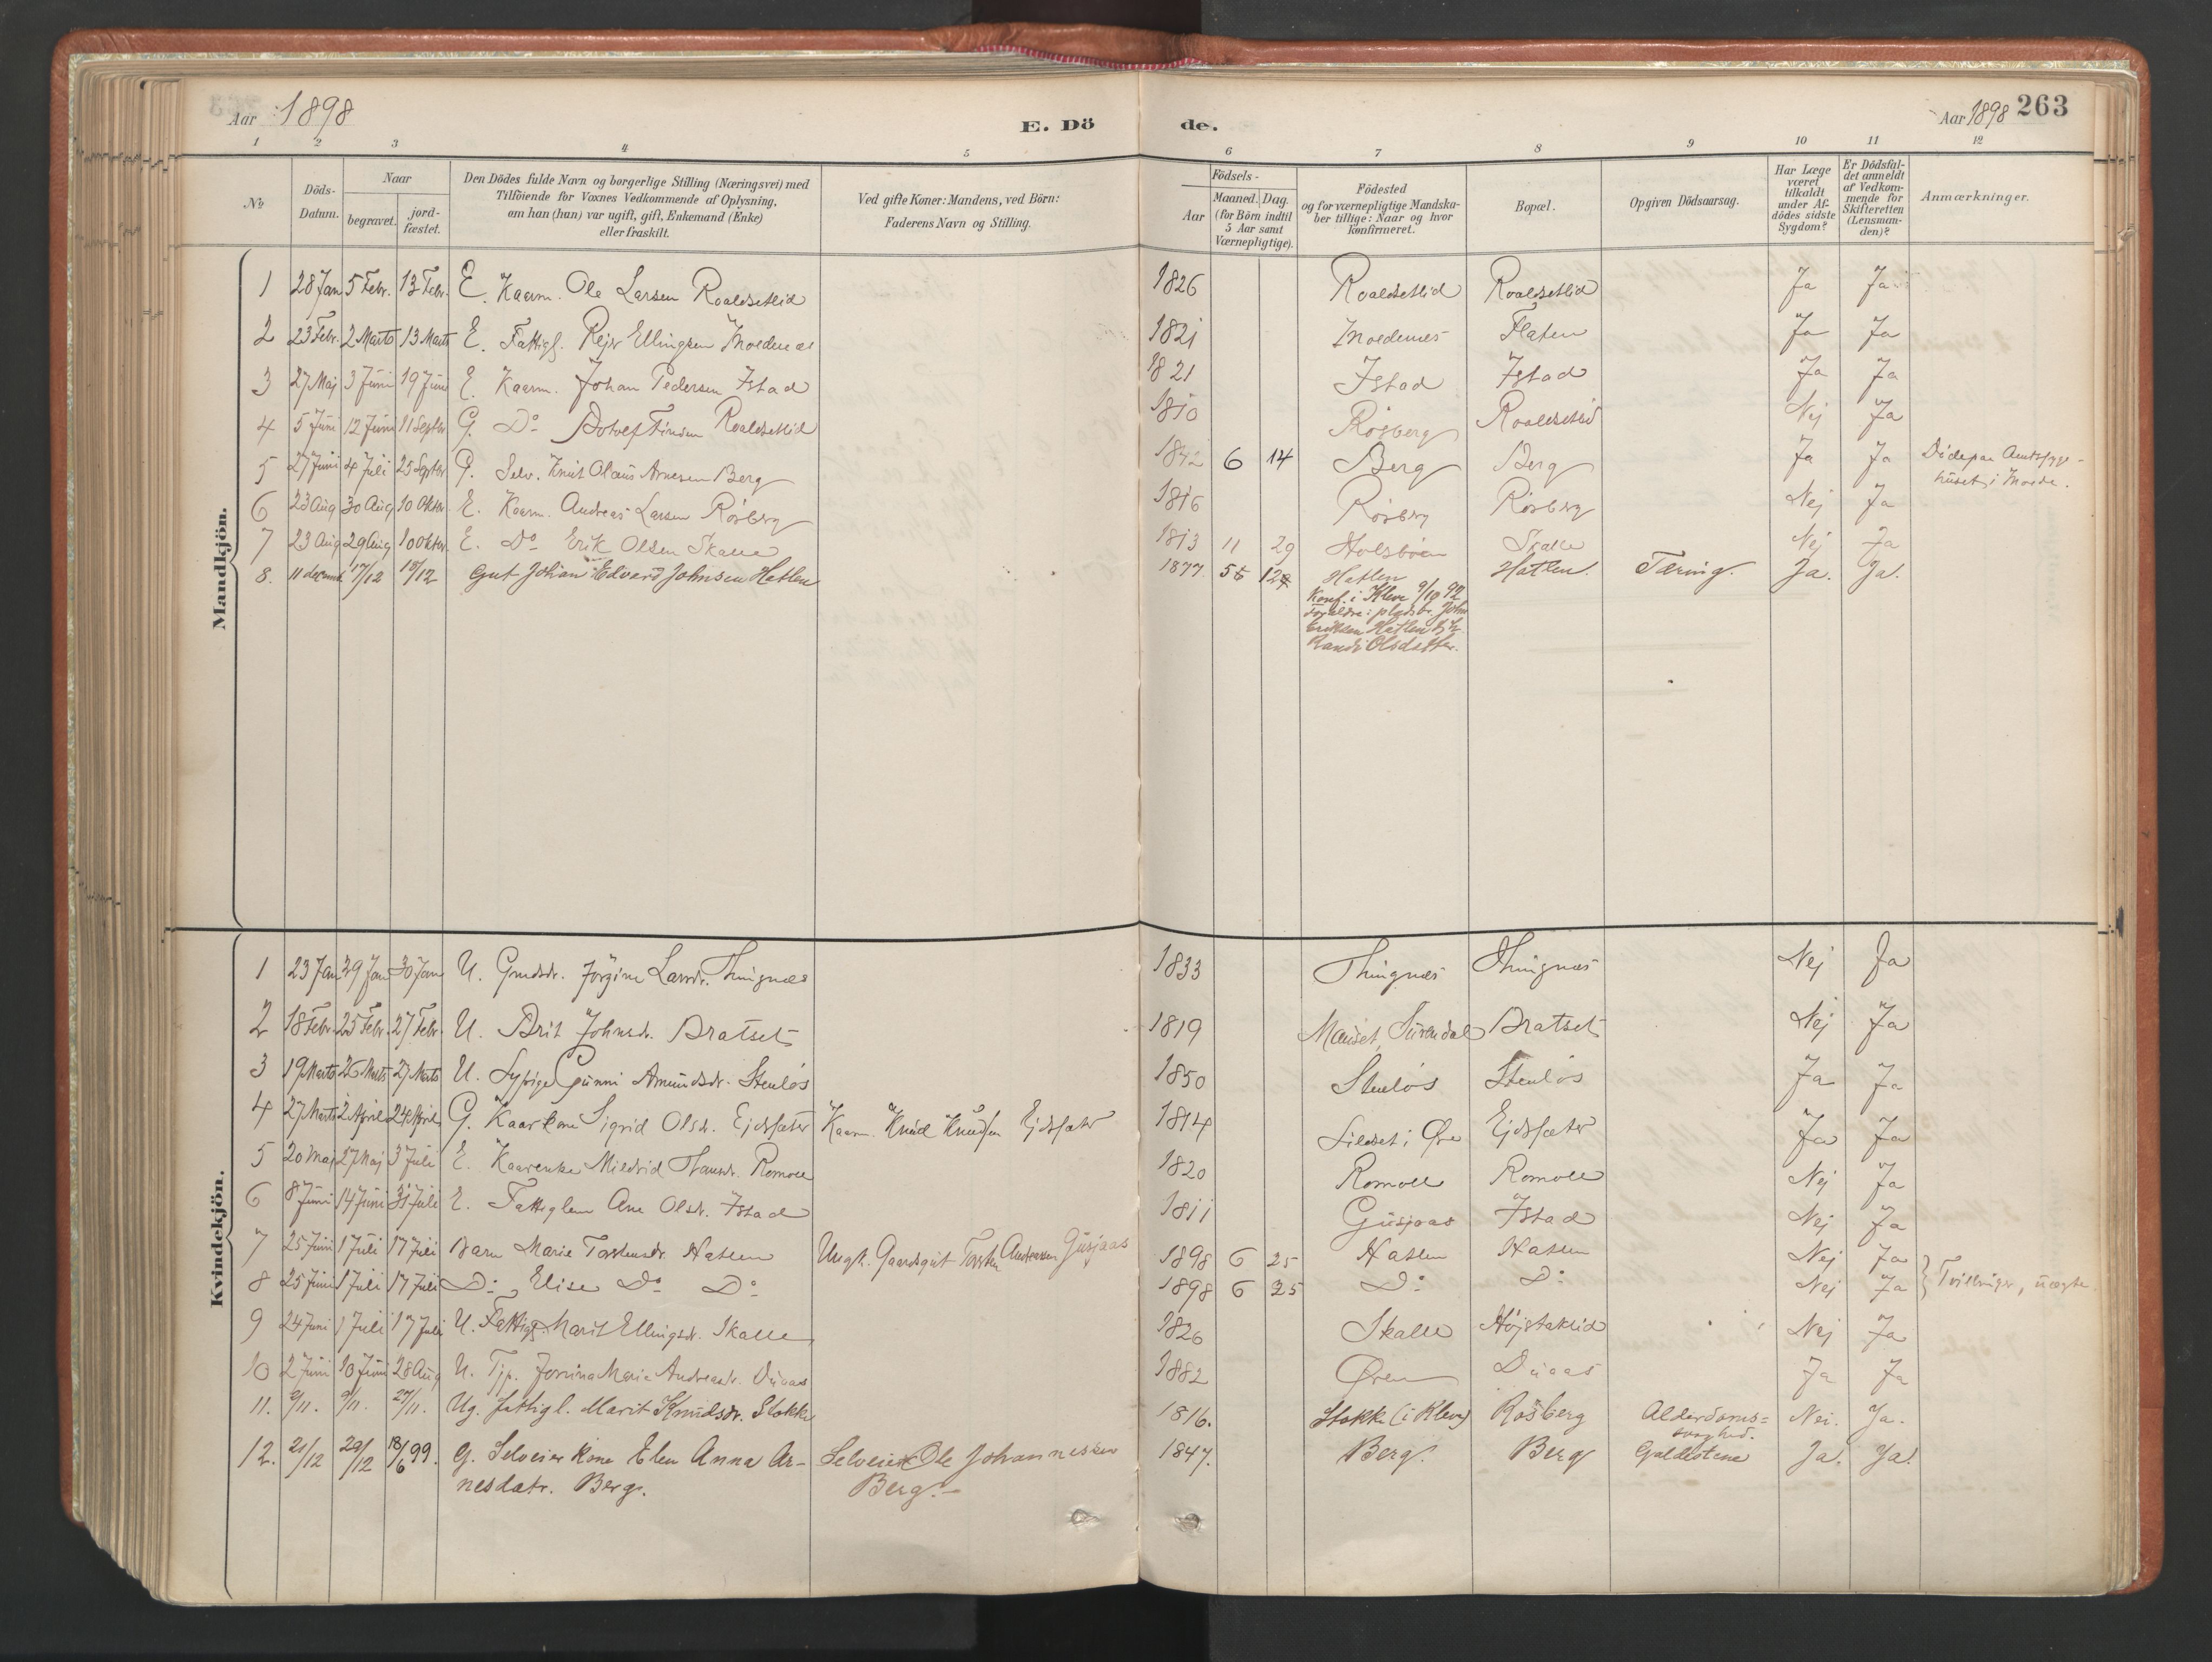 Aar 1898
E. Dö
de.
Aar 1898 263
1 2 3 4 5 6 7 8 9 10 11 12
No
Döds-
Datum.
Naar
begravet.
jord-
fæstet.
Den Dödes fulde Navn og borgerlige Stilling (Næringsvei) med
Tilföiende for Voxnes Vedkommende af Oplysning,
om han (hun) var ugift, gift, Enkemand (Enke)
eller fraskilt.
Ved gifte Koner: Mandens, ved Börn:
Faderens Navn og Stilling.
Födsels-
Aar
Maaned. Dag.
(for Börn indtil
5 Aar samt
Værnepligtige).
Födested
og for værnepligtige Mandska-
ber tillige: Naar og hvor
konfirmeret.
Bopæl.
Opgiven Dödsaarsag.
Har Læge
været
tilkaldt
under Af-
dödes sidste
Sygdom?
Er Dödsfal-
det anmeldt
af Vedkom-
mende for
Skifteretten
(Lensman-
den)?
Anmærkninger.
Mandkjön.
1 28 Jan 5 Febr. 13 Febr. E. Kaarm. Ole Larsen Roaldsetlid 1826 Roaldsetlid Roaldsetlid Ja Ja
2 23 Febr. 2 Marts 13 Marts E. Fattigl. Ellingsen 1821 Flaten Ja Ja
3 27 Maj 3 Juni 19 Juni E. Kaarm. Johan Pedersen Istad 1821 Istad Istad Ja Ja
4 5 Juni 12 Juni 11 Septbr G. Do Roaldsetlid 1810 Rösberg Roaldsetlid Nej Ja
5 27 Juni 4 Juli 25 Septbr G. Selv. Knut Olaus Arnesen Berg 1842 6 14 Berg Berg Ja Ja Döde paa Amtssyge-
huset i Molde.
6 23 Aug 30 Aug 10 Oktbr. E. Kaarm. Andreas Larsen Rösberg 1816 Rösberg Rösberg Nej Ja
7 23 Aug 29 Aug 10 Oktbr. E. Do Erik Olsen Skalle 1813 11 29 Skalle Nej Ja
8. 11 decemb. 17/12 18/12 Gut Johan Edvard Johnsen Hatlen 1877. Hatlen Hatlen. Tæring. Ja. Ja.
Konf. i Kleve 9/10 92
Forældre: pladsbr. John
Eriksen Hatlen &
Randi Olsdatter.
Kvindekjön.
1 23 Jan 29 Jan 30 Jan U. Grmdsdr. Jörgine Larsdr. Thingnæs 1833 Thingnæs Thingnæs Nej Ja
2 18 Febr. 25 Febr. 27 Febr. U. Brit Johnsdr. Bratset 1819 Surendal Bratset Nej Ja
3 19 Marts 26 Marts 27 Marts U. Sypige Gunni Amundsdr. Stenlös 1850 Stenlös Stenlös Ja Ja
4 27 Marts 2 April 24 April G. Kaarkone Sigrid Olsdr. Ejdssæter Kaarm. Knud Knudsen Ejdssæter 1814 Silset i Öre Ejdssæter Ja Ja
5 20 Maj 27 Maj 3 Juli E. Kaarenke Mildrid Hansdr. Romoll 1820 Romoll Romoll Nej Ja
6 8 Juni 14 Juni 31 Juli E. Fattiglem Ane Olsdr. Istad 1811 Gusjaas Istad Nej Ja
7 25 Juni 1 Juli 17 Juli Barn Marie Torstensdr. Hatlen Ungk. Gaardsgut Torsten Andersen Gusjaas 1898 6 25 Hatlen Hatlen Nej Ja
8 25 Juni 1 Juli 17 Juli Do Elise Do Do 1898 6 25 Do Do Nej Ja } Tvillinger, uægte.
9 24 Juni 1 Juli 17 Juli U. Fattigl. Marit Ellingsdr. Skalle 1826 Skalle Höjstaklid Nej Ja
10 2 Juni 10 Juni 28 Aug U. Tjp. Marie Andreasdr. Duaas 1882 Ören Duaas Ja Ja
11. 2/11. 9/11. 27/11. Ug. fattigl. Marit Knudsdr. Stokke 1816. Stokke (i Kleve) Rösberg Alderdoms=
svaghed. Nei. Ja.
12. 21/12 29/12 18/6 99. G. Selveier kone Elen Anna Ar-
nesdatr. Berg. Selveier Ole Johannessen
Berg. 1847. Berg. Berg Galdestene Ja. Ja.